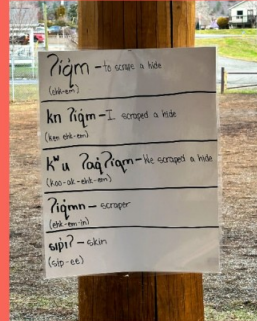 ʔiq̓m – to scrape a hide
(ehk-em)
kn ʔiq̓m – I scraped a hide
(ken ehk-em)
kʷu ʔaq̓ʔiqm – We scraped a hide
(koo-ak-ehk-em)
ʔiq̓mn – scraper
(ehk-em-in)
sip̓iʔ – skin
(sip-ee)